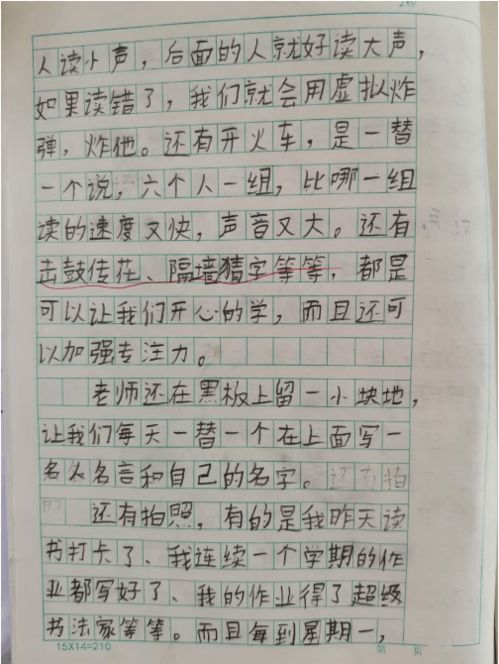 人读小声，后面的人就好读大声，
如果读错了，我们就会用虚拟炸
弹，炸他。还有开火车，是一替
一个说，六个人一组，比哪一组
读的速度又快，声音又大。还有
击鼓传花、隔墙猜字等等，都是
可以让我们开心的学，而且还可
以加强专注力。
老师还在黑板上留一小块地，
让我们每天一替一个在上面写一
名人名言和自己的名字。还有拍
还有拍照，有的是我昨天读
书打卡了、我连续一个学期的作
业都写好了、我的作业得了超级
书法家等等。而且每到星期一，
15X14=210 第 页